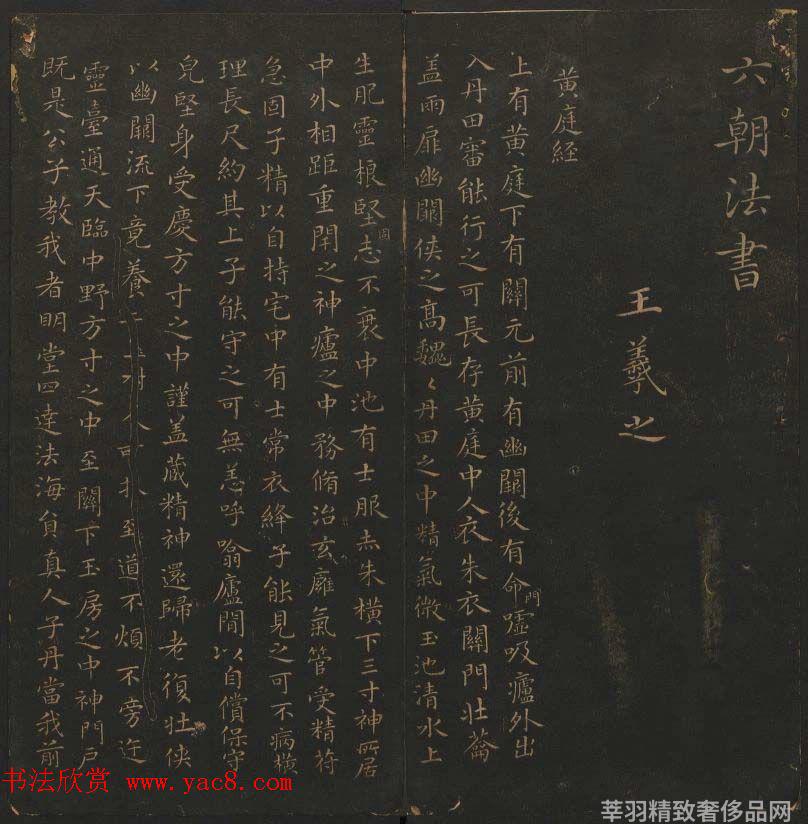 六朝法書
王羲之
黄庭経
上有黄庭下有關元前有幽闕後有命門嘘吸廬外出
入丹田審能行之可長存黄庭中人衣朱衣關門壯籥
盖兩扉幽闕侠之高魏〻丹田之中精氣微玉池清水上
生肥靈根堅志固不衰中池有士服赤朱横下三寸神所居
中外相距重閇之神廬之中務脩治玄𤸎氣管受精符
急固子精以自持宅中有士常衣絳子能見之可不病横
理長尺約其上子能守之可無恙呼噏廬閒以自償保守
皃堅身受慶方寸之中謹盖蔵精神還歸老復壯侠
以幽闕流下竟養子玉樹令可扙至道不煩不旁迕
靈臺通天臨中野方寸之中至關下玉房之中神門户
既是公子教我者明堂四達法海負真人子丹當我前
书法欣赏 www.yac8.com
莘羽精致奢侈品网